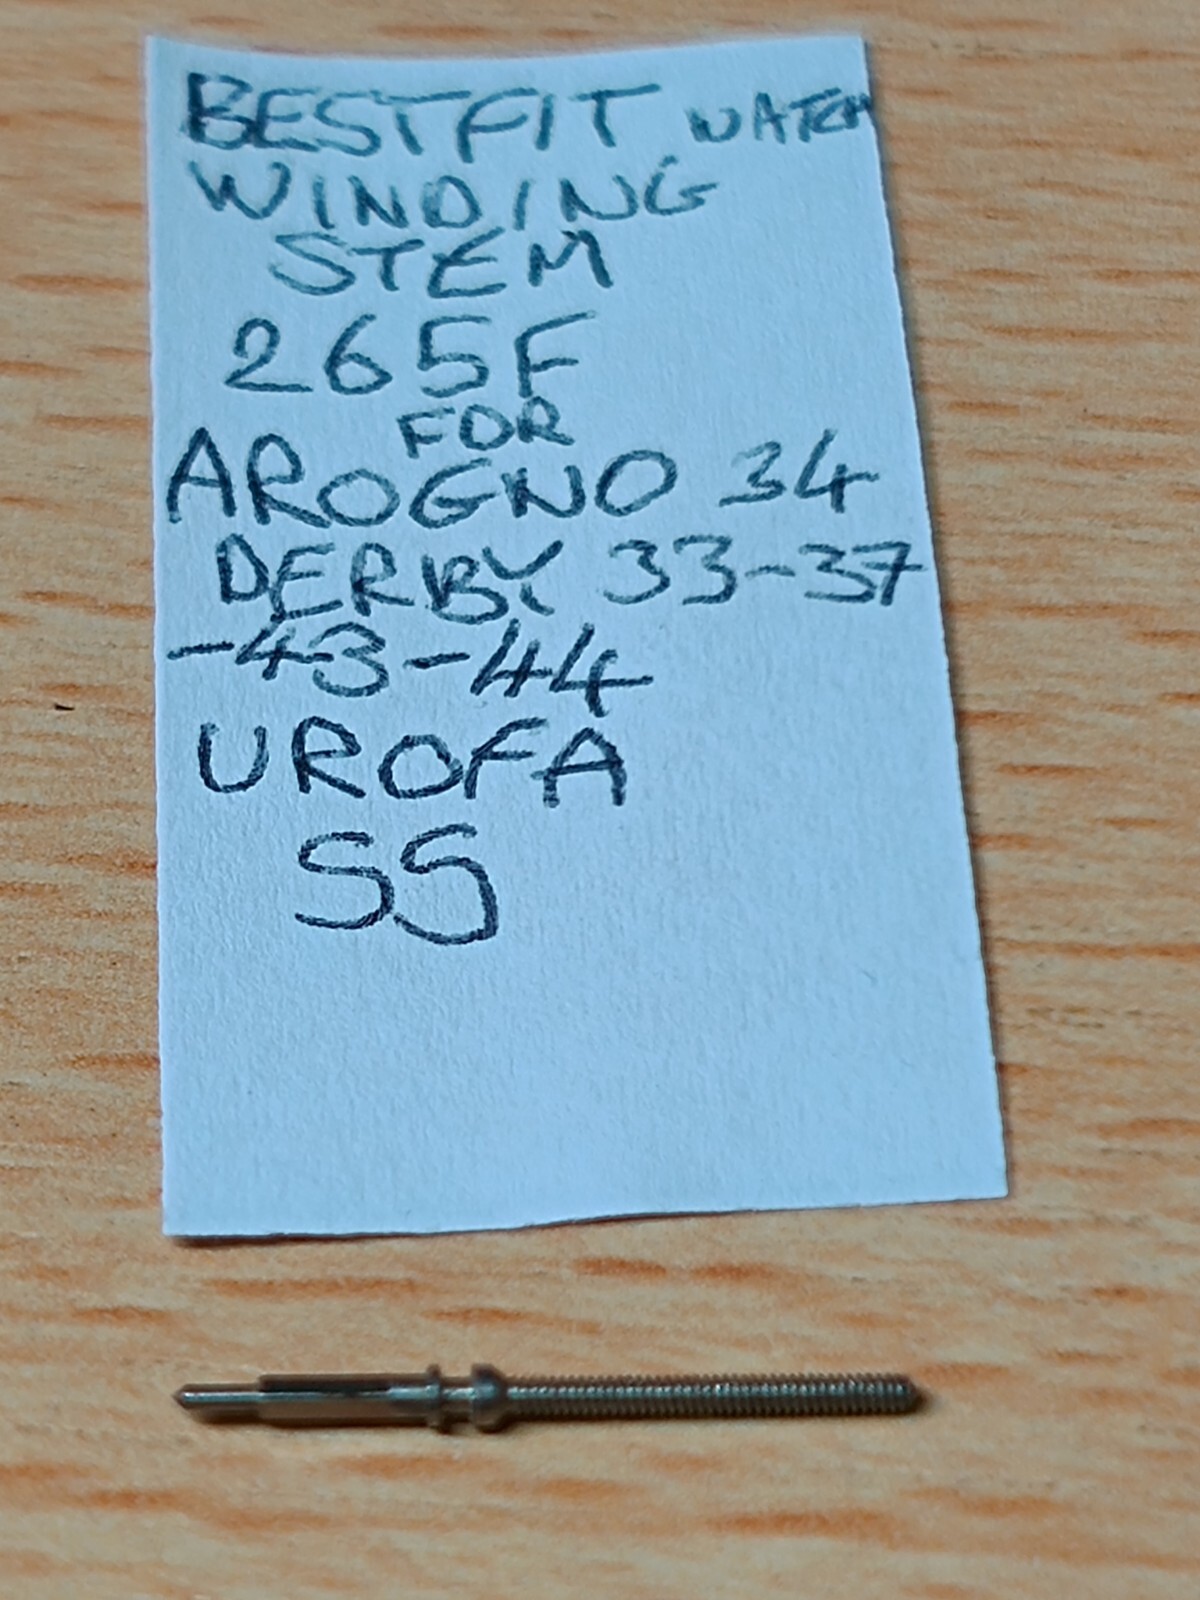 BESTFIT WATCH
WINDING
STEM
265F
FOR
AROGNO 34
DERBY 33-37
-43-44
UROFA
SS